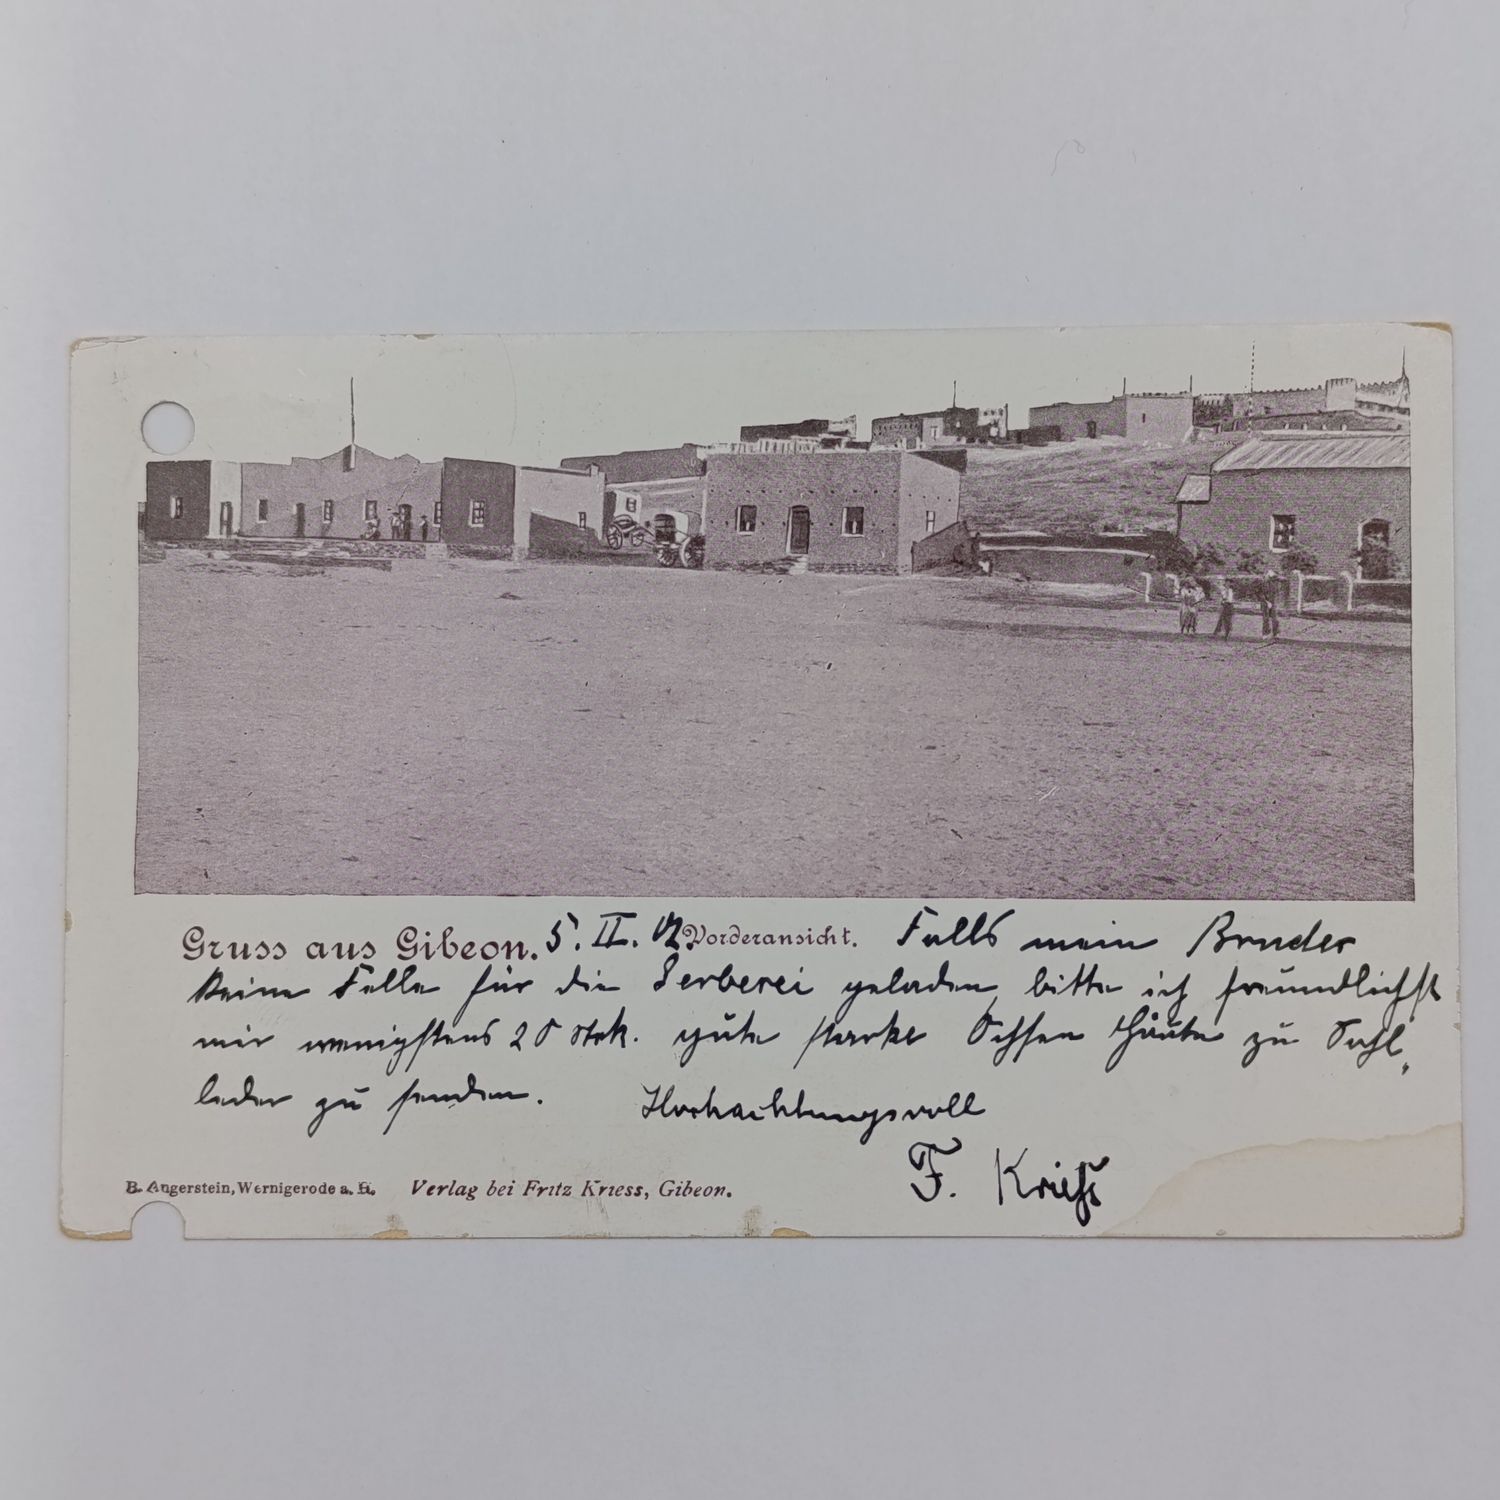 Gruss aus Gibeon. 5. II. 02 Vorderansicht. Falls mein Bruder
keine Felle für die Gerberei geladen, bitte ich freundlichst
mir wenigstens 20 Stck. gute starke Ochsen Häute zu Sohl„
leder zu senden. Hochachtungsvoll
F. Kriess
B. Angerstein, Wernigerode a. H. Verlag bei Fritz Kriess, Gibeon.